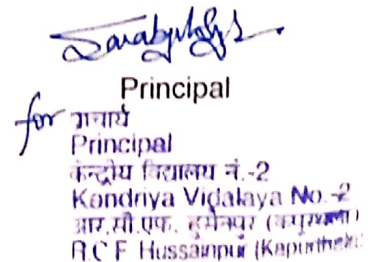 Principal
for प्राचार्य
Principal
केन्द्रीय विद्यालय नं.-2
Kendriya Vidalaya No.-2
आर.सी.एफ. हुसैनपुर (कपूरथला)
R.C F Hussainpur (Kapurthala)